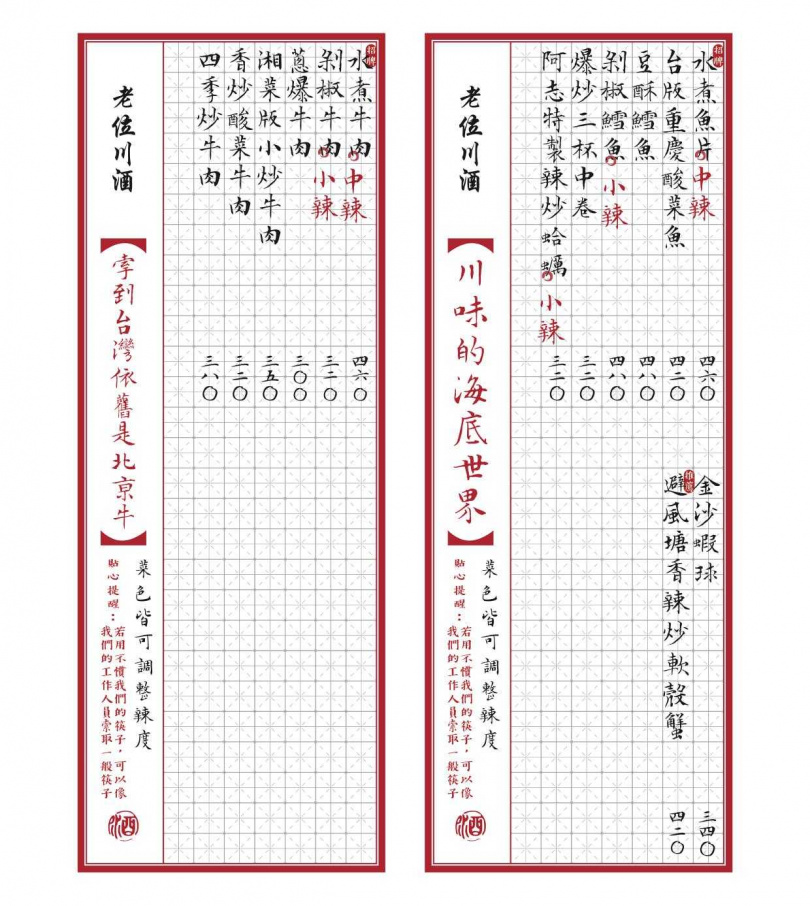 招牌
水煮魚片 中辣 四六〇
台版重慶酸菜魚 四二〇
豆酥鱈魚 四八〇
剁椒鱈魚 小辣 四八〇
爆炒三杯中卷 三二〇
阿志特製辣炒蛤蠣 小辣 三二〇
金沙蝦球 三四〇
推薦
避風塘香辣炒軟殼蟹 四二〇
老位川酒
川味的海底世界
菜色皆可調整辣度
貼心提醒：若用不慣我們的筷子，可以像
我們的工作人員索取一般筷子
招牌
水煮牛肉 中辣 四六〇
剁椒牛肉 小辣 三二〇
蔥爆牛肉 三〇〇
湘菜版小炒牛肉 三五〇
香炒酸菜牛肉 三二〇
四季炒牛肉 三八〇
老位川酒
牽到台灣依舊是北京牛
菜色皆可調整辣度
貼心提醒：若用不慣我們的筷子，可以像
我們的工作人員索取一般筷子